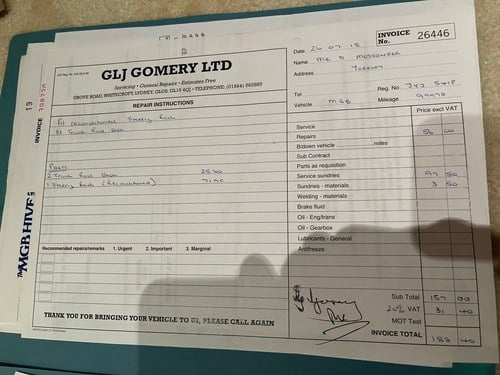 GLJ GOMERY LTD
Servicing • General Repairs • Estimates Free
GROVE ROAD, WHITECROFT, LYDNEY, GLOS, GL15 4QJ • TELEPHONE: (01594) 562885
REPAIR INSTRUCTIONS
INVOICE No. 26446
Date 26.07.15
Name MR D
Address
Tel
Reg. No
Vehicle MGB
Mileage
Price excl VAT
Fit reconditioned Steering Rack
Fit Track Rod
Parts
2 Track Rod 25.60
1 Steering Rack (Reconditioned) 71.90
Service
Repairs 56 00
B/down vehicle miles
Sub Contract
Parts as requisition
Service sundries 97 50
Sundries - materials 3 50
Welding - materials
Brake fluid
Oil - Eng/trans
Oil - Gearbox
Lubricants - General
Antifreeze
Recommended repairs/remarks 1. Urgent 2. Important 3. Marginal
Sub Total 157 00
20% VAT 31 40
MOT Test
INVOICE TOTAL 188 40
THANK YOU FOR BRINGING YOUR VEHICLE TO US, PLEASE CALL AGAIN
INVOICE
19
The MGB HIVE